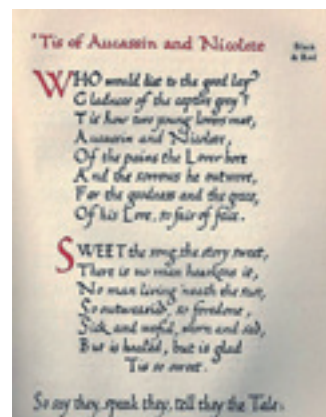 'Tis of Aucassin and Nicolete
Black
& Red
WHO would list to the good lay?
Gladness of the captive grey?
'Tis how two young lovers met,
Aucassin and Nicolete,
Of the pains the Lover bore
And the sorrows he outwore,
For the goodness and the grace,
Of his Love, so fair of face.
SWEET the song, the story sweet,
There is no man hearkens it,
No man living 'neath the sun,
So outwearied, so foredone,
Sick and woful, worn and sad,
But is healed, but is glad
'Tis so sweet.
So say they, speak they, tell they the Tale: